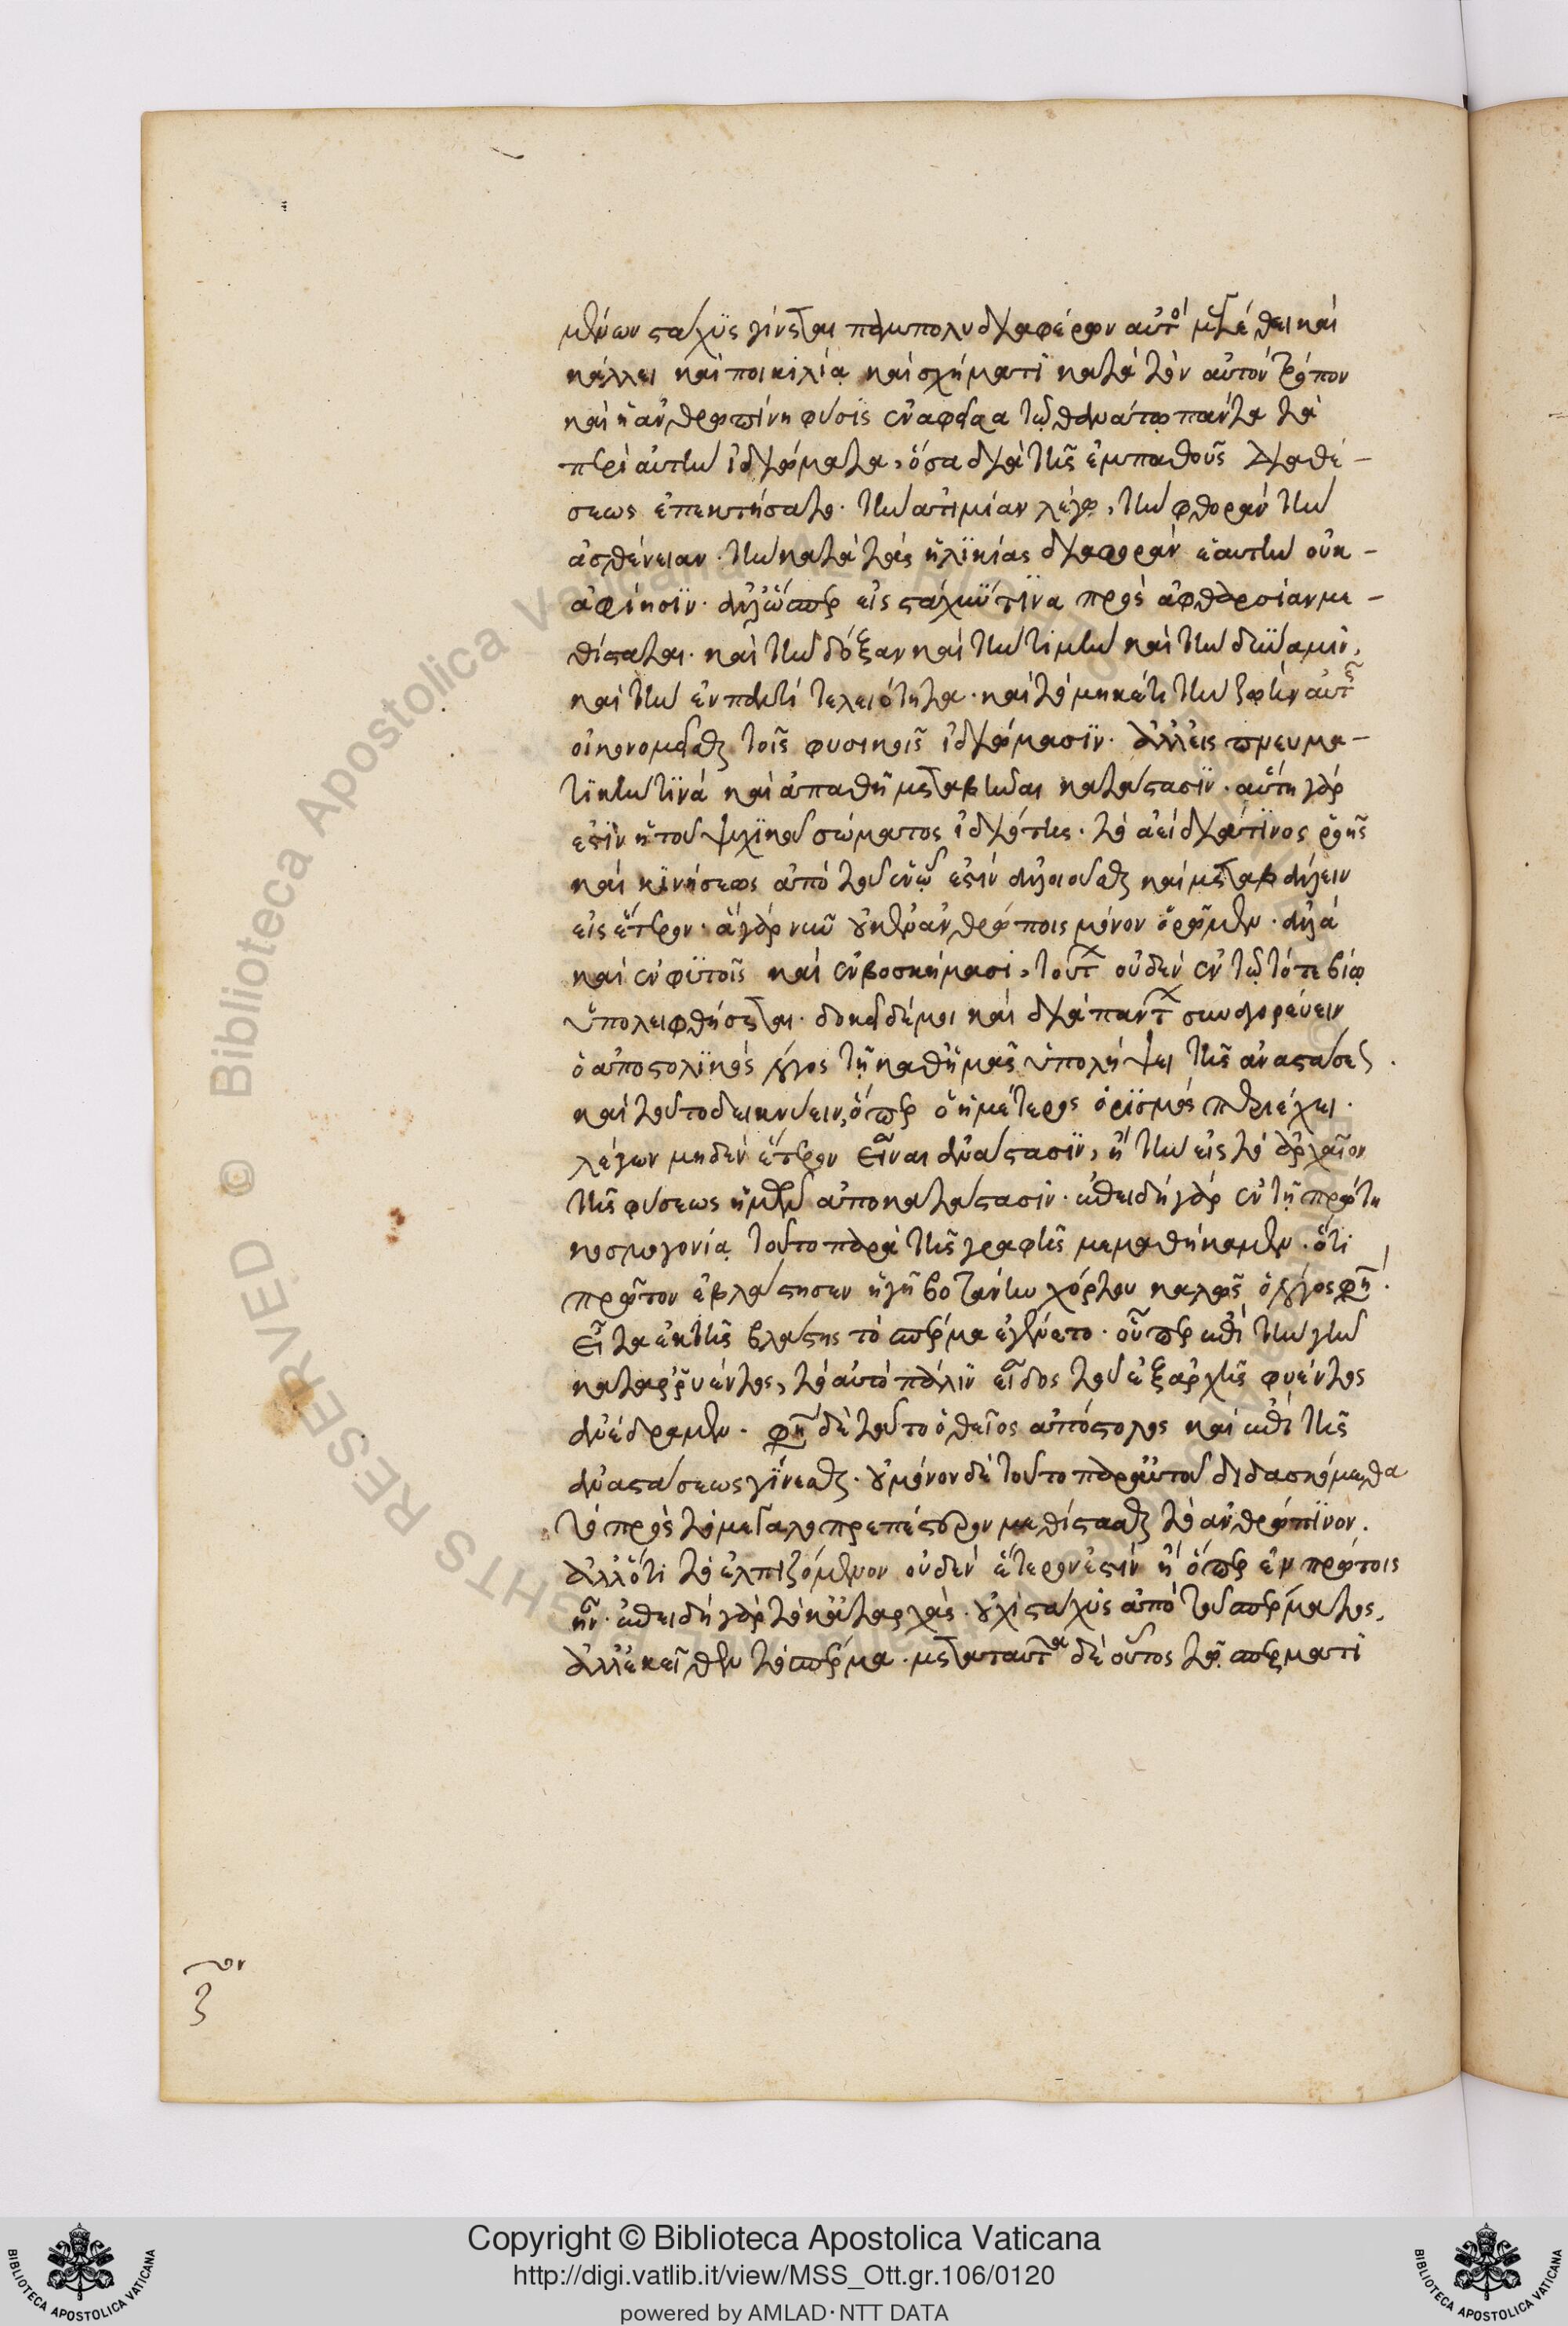 μένων στάχυς γίνεται πάμπολυ διαφέρων αὐτὸς μεγέθει καὶ
κάλλει καὶ ποικιλία καὶ σχήματι κατὰ τὸν αὐτὸν τρόπον
καὶ ἡ ἀνθρωπίνη φύσις ἐναφεῖσα τῷ θανάτῳ πάντα τὰ
περὶ αὐτὴν ἰδιώματα, ὅσα διὰ τῆς ἐμπαθοῦς διαθέ-
σεως ἐπεκτήσατο. τὴν ἀτιμίαν λέγω, τὴν φθορὰν τὴν
ἀσθένειαν. τὴν κατὰ τὰς ἡλικίας διαφορὰν ἑαυτὴν οὐκ-
ἀφίησιν. ἀλλ' ὥσπερ εἰς στάχυν τινα πρὸς ἀφθαρσίαν με-
θίσταται. καὶ τὴν δόξαν καὶ τὴν τιμὴν καὶ τὴν δύναμιν,
καὶ τὴν ἐν παντὶ τελειότητα. καὶ τὸ μηκέτι τὴν ζωὴν αὐτῆς
οἰκονομεῖσθαι τοῖς φυσικοῖς ἰδιώμασιν. ἀλλ' εἰς πνευμα-
τικὴν τινὰ καὶ ἀπαθῆ μεταβῆναι κατάστασιν. αὕτη γὰρ
ἐστὶν ἡ τοῦ ψυχικοῦ σώματος ἰδιότης. τὸ ἀεὶ διά τινος ῥοῆς
καὶ κινήσεως ἀπὸ τοῦ ἐν ᾧ ἐστὶν ἀλλοιοῦσθαι καὶ μεταβάλλειν
εἰς ἕτερον. ἃ γὰρ νῦν οὐκ ἐν ἀνθρώποις μόνον ὁρῶμεν. ἀλλὰ
καὶ ἐν φυτοῖς καὶ ἐν βοσκήμασι, τούτων οὐδὲν ἐν τῷ τότε βίῳ
ὑπολειφθήσεται. δοκεῖ δέ μοι καὶ διὰ πάντων συναγορεύειν
ὁ ἀποστολικὸς λόγος τῇ καθ' ἡμᾶς ὑπολήψει τῆς ἀναστάσεως.
καὶ τοῦτο δεικνύειν, ὅπερ ὁ ἡμέτερος ὁρισμὸς περιέχει.
λέγων μηδὲν ἕτερον εἶναι ἀνάστασιν, ἢ τὴν εἰς τὸ ἀρχαῖον
τῆς φύσεως ἡμῶν ἀποκατάστασιν. ἐπειδὴ γὰρ ἐν τῇ πρώτῃ
κοσμογονίᾳ τοῦτο παρὰ τῆς γραφῆς μεμαθήκαμεν. ὅτι
πρῶτον ἐβλάστησεν ἡ γῆ βοτάνην χόρτου καλῶς ὁ λόγος φησί.
εἶτα ἐκ τῆς βλάστης τὸ σπέρμα ἐγένετο. οὗπερ ἐπὶ τὴν γῆν
καταρρυέντος, τὸ αὐτὸ πάλιν εἶδος τοῦ ἐξ ἀρχῆς φυέντος
ἀνέδραμεν. φησὶ δὲ τοῦτο ὁ θεῖος ἀπόστολος καὶ ἐπὶ τῆς
ἀναστάσεως γίνεσθαι. οὐ μόνον δὲ τοῦτο παρ' αὐτοῦ διδασκόμεθα
τὸ πρὸς τὸ μεγαλοπρεπέστερον μεθίστασθαι τὸ ἀνθρώπινον.
ἀλλ' ὅτι τὸ ἐλπιζόμενον οὐδὲν ἕτερον ἐστὶν ἢ ὅπερ ἐν πρώτοις
ἦν. ἐπειδὴ γὰρ τὸ κατ' ἀρχὰς. οὐχὶ στάχυς ἀπὸ τοῦ σπέρματος,
ἀλλ' ἐκεῖθεν τὸ σπέρμα. μετὰ ταῦτα δὲ οὗτος τῷ σπέρματι
ζον
Copyright © Biblioteca Apostolica Vaticana
http://digi.vatlib.it/view/MSS_Ott.gr.106/0120
powered by AMLAD·NTT DATA